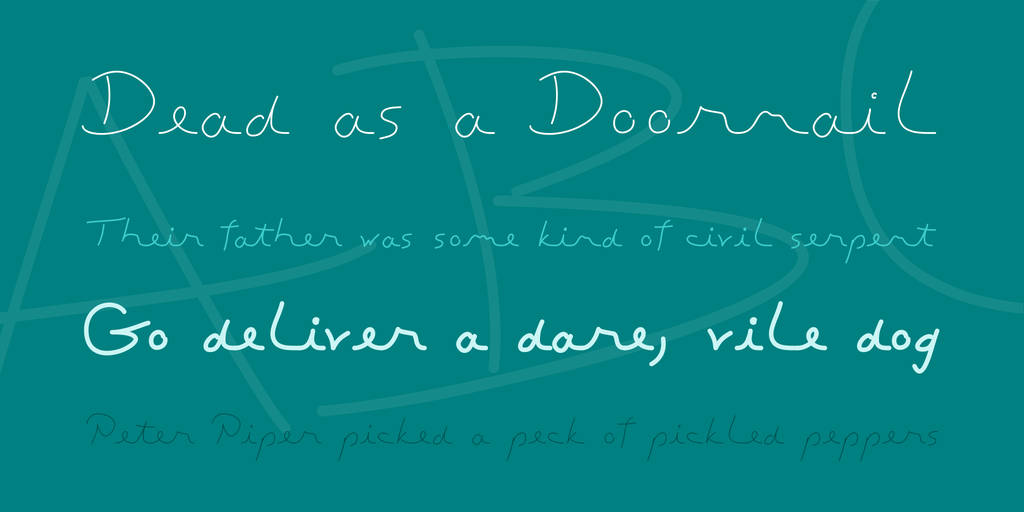 Dead as a Doornail
Their father was some kind of civil serpent
Go deliver a dare, vile dog
Peter Piper picked a peck of pickled peppers
ABC